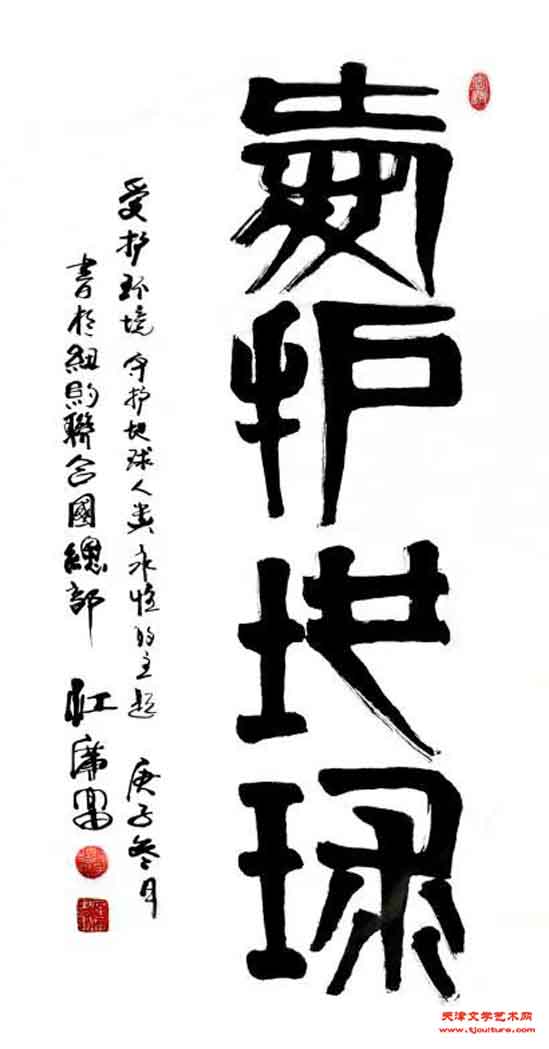 愛护地球
爱护环境 守护地球人类永恒的主题 庚子冬月
書於紐約聯合國總部
天津文学艺术网
www.tjculture.com